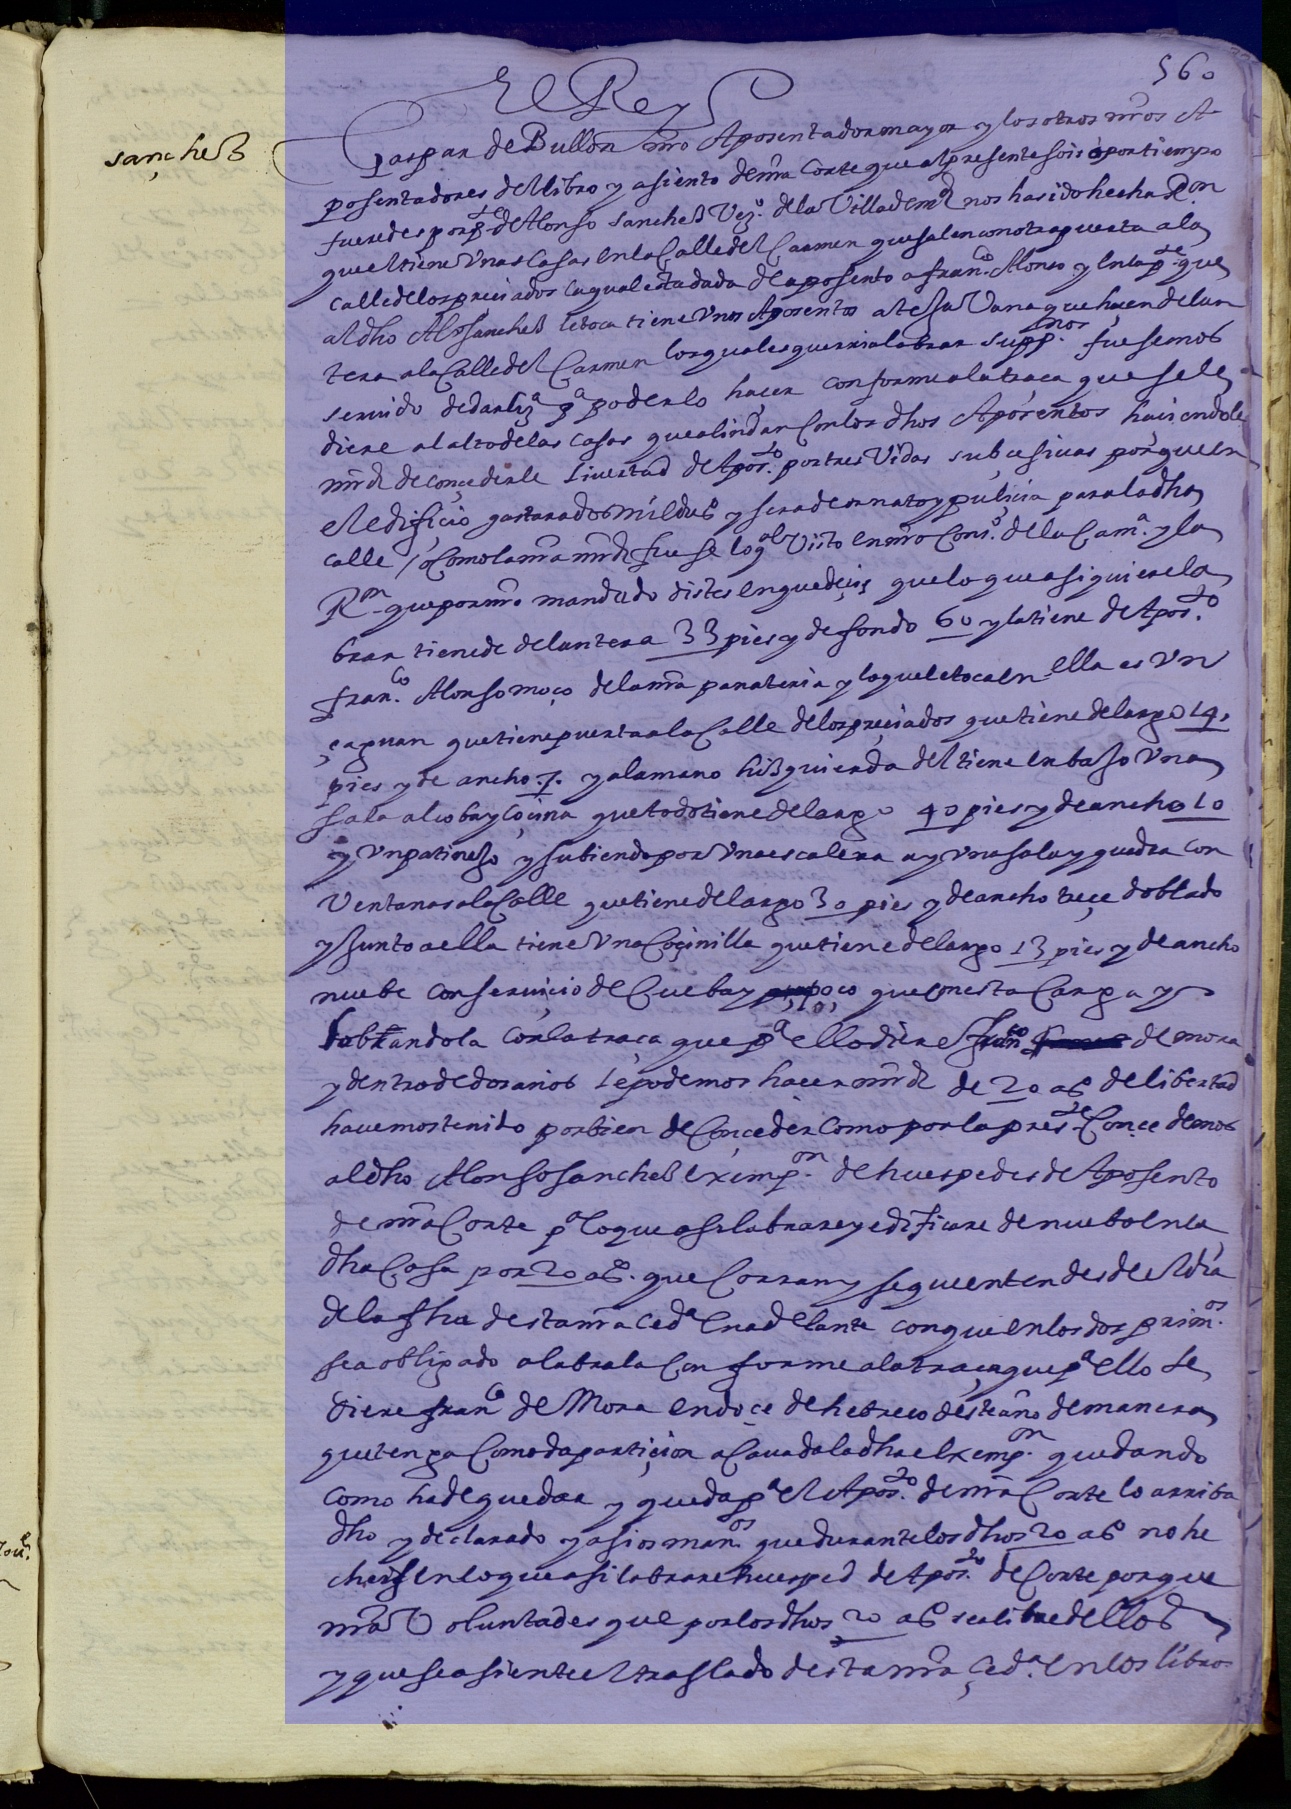 560
El Rey
sanchez
Gaspar de Bullon nro Aposentador mayor y los otros nros A-
posentadores del libro y asiento de nra Corte que al presente sois o por tiempo
fueredes por pte de Alonso sanchez Vezo. de la Villa de md nos ha sido hecha Ron
que el tiene Unas Casas en la Calle del Carmen que salen con otra puerta a la
calle de los preciados la qual esta dada de aposento a franco. Alonso y en la pte que
al dho Alo sanchez le toca tiene Unos Aposentos a teja Vana que hacen delan
tera a la Calle del Carmen los quales querria labrar suppnos fuesemos
seruido de dar liza pa poderlo hacer conforme a la traca que se le
diere al alto de las casas que alindan Con los dhos Aposentos haciendole
mrd de concederle livertad de Aposto. por tres Vidas subcesiuas porque en
el edificio gastara dos mil dus y sera de ornato y puliçia para la dha
calle / o Como la nra mrd fuese lo qal Visto en nro Conso. de la Cama. y la
Ron que por nro mandado distes en que decis que lo que asi quiere la
brar tiene de delantera 33 pies y de fondo 60 y la tiene de Aposto.
franco. Alonso moço de la nra panateria y lo que le toca en ella es Un
çaguan que tiene puerta a la Calle de los preçiados que tiene de largo 14.
pies y de ancho .7. y a la mano hizquierda del tiene en bajo Una
sala alcoba y Coçina que todo tiene de largo 40 pies y de ancho 10
y Un patinejo y subiendo por Una escalera ay Una sala y quadra con
Ventanas a la Calle que tiene de largo 30 pies y de ancho treçe doblado
y Junto a ella tiene Una Coçinilla que tiene de largo 13 pies y de ancho
nuebe con seruicio de Cueba y poço que con esta Carga y
labrandola con la traça que pa ello diere franco de mora
y dentro de dos años le podemos hacer mrd de 20 as de libertad
hauemos tenido por bien de Conceder como por la preste Concedemos
al dho Alonso sanchez exempon. de huespedes de Aposento
de nra Corte pa lo que asi labrare y edificare de nuebo en la
dha Casa por 20 as. que Corran y se quenten desde el dia
de la fha desta nra Ceda en adelante con que en los dos primos.
sea obligado a labrala Conforme a la traça que pa ello le
diere franco de Mora en doçe de hebrero deste año de manera
que tenga Comoda partiçion acauada la dha exempon. quedando
como ha de quedar y queda pa el Aposto. de nra Corte lo arriba
dho y declarado y asi os manos que durante los dhos 20 as no he
cheis en lo que asi labrare huesped de Aposto. de Corte porque
nra Voluntad es que por los dhos 20 as sea libre dellos
y que se asiente el traslado desta nra Ceda. en los libros